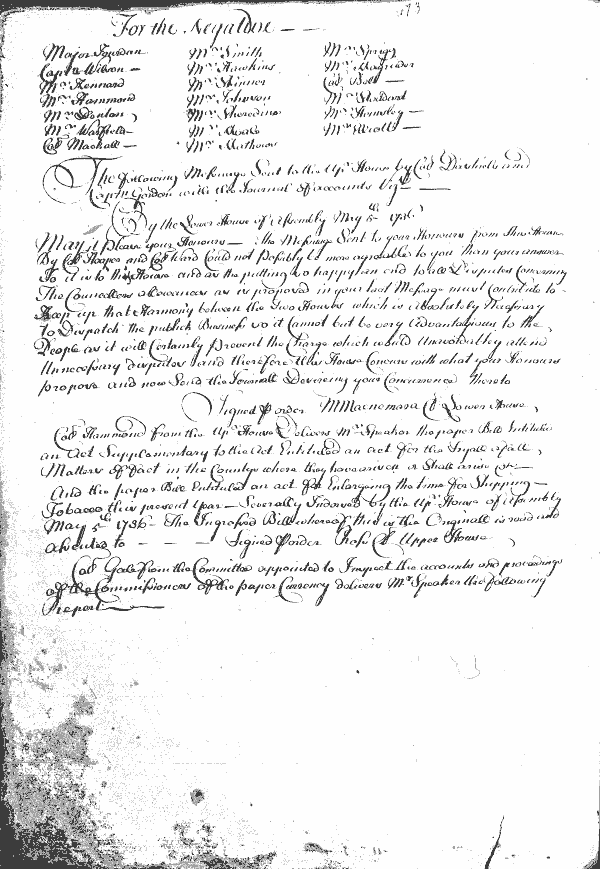 193
For the Negative
Major Jourdan Mr Smith Mr Sprigg
Captn Wilson Mr Hawkins Mr Magruder
Mr Kennard Mr Skinner Col Bell
Mr Hammond Mr Johnson Mr Stoddart
Mr Denton Mr Sheredine Mr Hemsley
Mr Warfield Mr Mathews
Col Mackall
The following Message Sent to the Upr House by Col and
Captn Gordon with the Journal of accounts by
By the Lower House of Assembly May 5th 1736
May it please your Honours the Message Sent to your Honours from this House
By Col Hooper and Col Ward Could not possibly be more agreeable to you than your answer
To it is to this House and as the putting so happy an end to all Disputes Concerning
The Councellors allowances as is proposed in your last Message must contribute to
keep up that Harmony between the two Houses which is absolutely Necessary
to Dispatch the publick Business so it Cannot but be very advantagious to the
People as it will Certainly prevent the Charge which would Unavoidably attend
Unnecessary disputes and therefore this House Concurs with what your Honours
propose and now Send the Journall Desireing your Concurrence thereto
Signed P order M Macnemara Cl Lower House
Col Hammond from the Upr House Delivers Mr Speaker the paper Bill Entituled
an Act Supplementary to the Act Entituled an act for the Tryall of all
Matters of Fact in the Countys where they have arisen or Shall arise &c
And the paper Bill Entituled an act for Enlarging the time for Shipping
Tobacco this present year Severally Indorsed by the Upr House of Assembly
May 5th 1736 The Ingrossed Bill whereof this is the Originall is read and
assented to Signed P order Cl Upper House
Col Gale from the Committee appointed to Inspect the accounts and proceedings
of the Commissioners of the paper Currency delivers Mr Speaker the following
Report